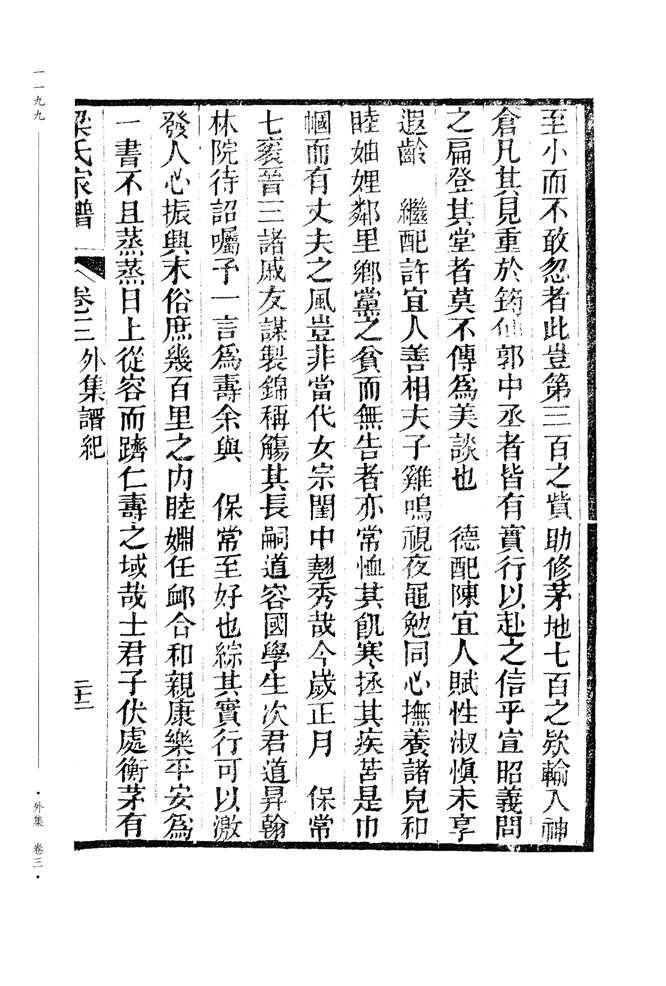 至小而不敢忽者此豈第三百之貲助修茅地七百之欵輸入神
倉凡其見重於筠仙郭中丞者皆有實行以赴之信乎宣昭義問
之扁登其堂者莫不傳為美談也　德配陳宜人賦性淑慎未享
遐齡　繼配許宜人善相夫子雞鳴視夜黽勉同心撫養諸兒和
睦妯娌鄰里鄉黨之貧而無告者亦常恤其飢寒拯其疾苦是巾
幗而有丈夫之風豈非當代女宗閨中翹秀哉今歲正月　保常
七袠晉三諸戚友謀製錦稱觴其長嗣道容國學生次君道昇翰
林院待詔囑予一言為壽余與　保常至好也綜其實行可以激
發人心振興末俗庶幾百里之内睦婣任卹合和親康樂平安為
一書不且蒸蒸日上從容而躋仁壽之域哉士君子伏處衡茅有
梁氏家譜　卷三　外集譜紀　二十三
一一九九
·外集　卷三·